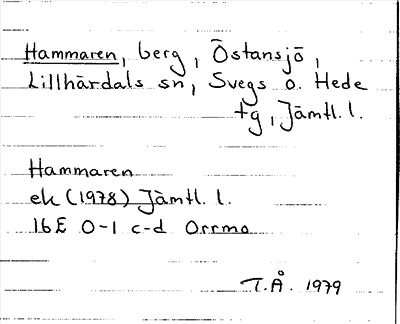 Hammaren, berg, Östansjö,
Lillhärdals sn, Svegs o. Hede
tg, Jämtl. l.
Hammaren
ek (1978) Jämtl. l.
16E 0-1 c-d Orrmo
T.Å. 1979